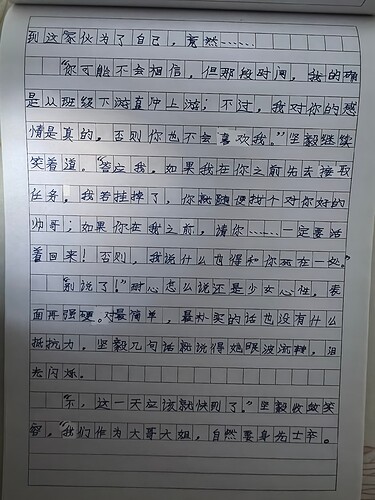 到这家伙为了自己，竟然……
“你可能不会相信，但那段时间，我的确
是从班级下游直冲上游；不过，我对你的感
情是真的，否则你也不会喜欢我。”坚毅继续
笑着道，“答应我。如果我在你之前先去接取
任务。我若挂掉了，你就随便找个对你好的
帅哥；如果你在我之前，请你……一定要活
着回来！否则，我说什么也得和你死在一处。”
“别说了！”甜心怎么说还是少女心性，表
面再强硬。对最简单，最朴实的话也没有什么
抵抗力，坚毅几句话就说得她眼波流转，泪
光闪烁。
“不，这一天应该就快到了。”坚毅收敛笑
容，“我们作为大哥大姐，自然要身先士卒。